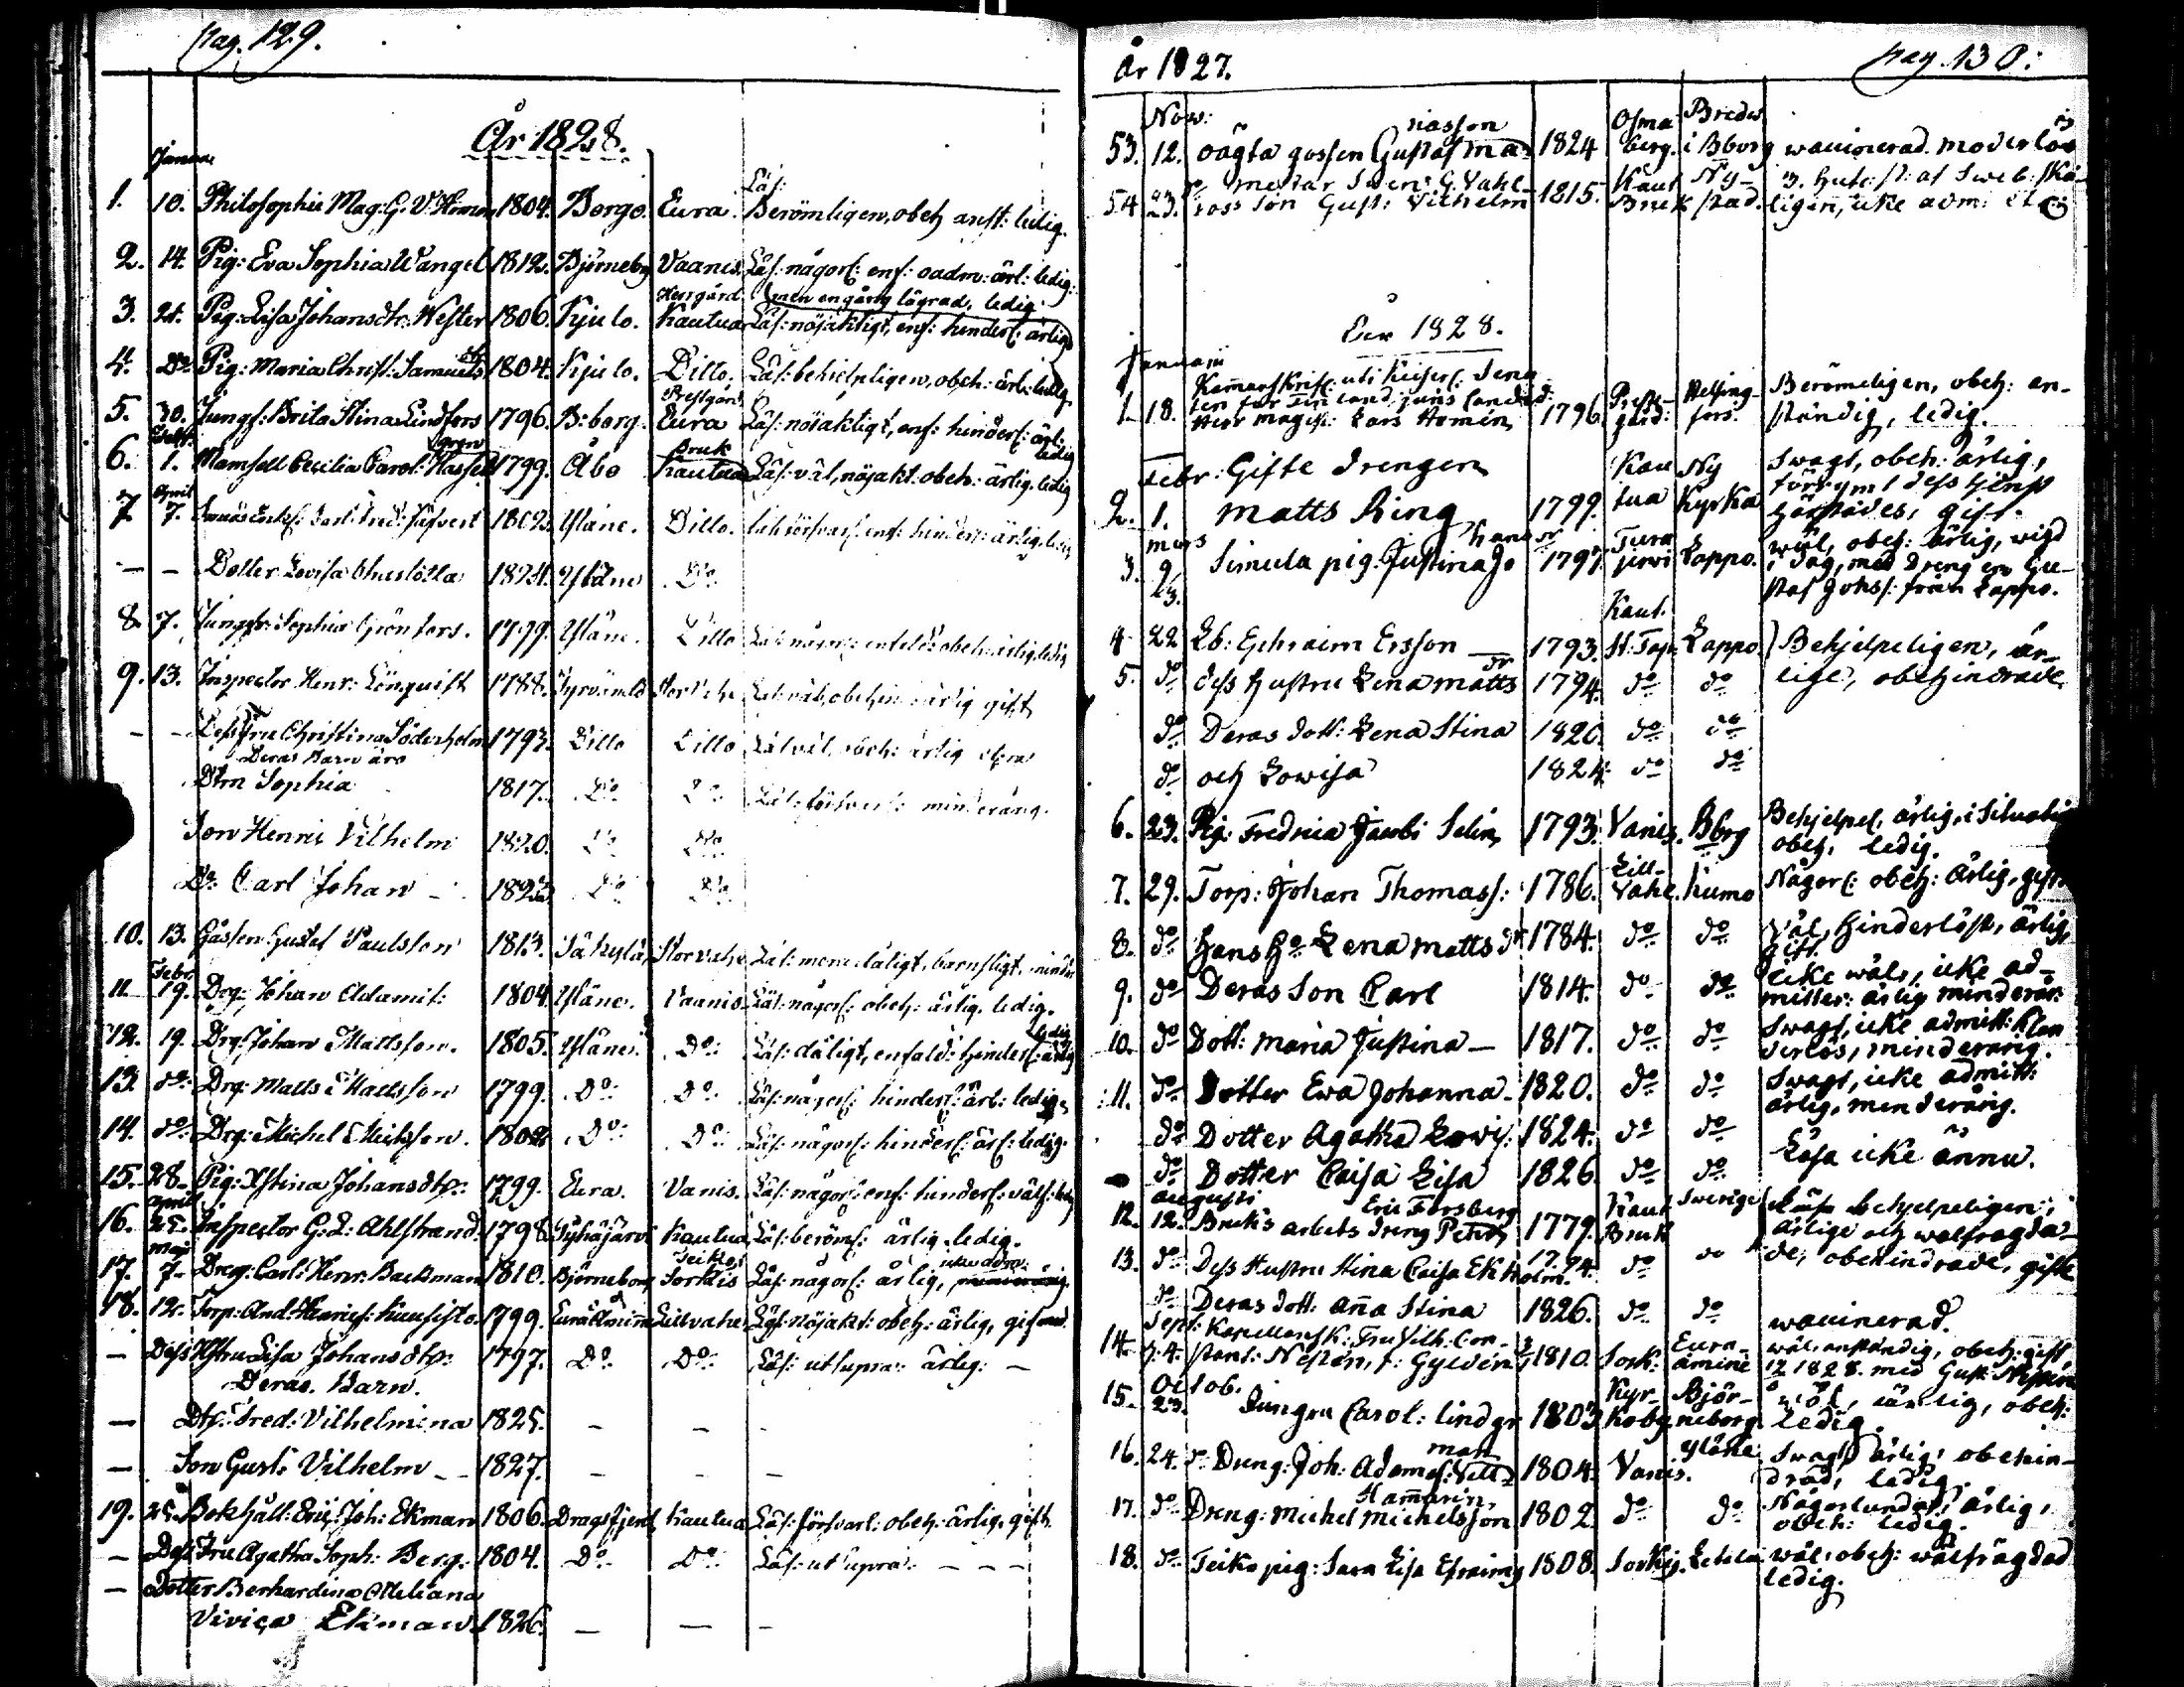 pag. 129.
År 1828.
Januar
Läs:
1. 10. Philosophiæ Mag: G. V. Homen 1804. Borgo. Eura. Berömligen, obeh. anst: ledig.
2. 14. Pig: Eva Sophia Wangel 1812. Björneb. Vaanis. Läs: någorl: enf: oadm: ärl: ledig.
Herrgård men en gång lägrad, ledig
3. 21. Pig: Lisa Johansdtr: Wester 1806. Kjulo. Kautua Läs: nöjaktigt, enf: hinderl: ärlig
4. Do Pig: Maria Christ: Samuelsdr 1804. Kjulo. Ditto. Läs: behjelpligen, obeh: ärl: ledig
Prestgård
5. 30. Jungf: Brita Stina Lindfors 1796. B:borg. Eura Läs: nöjaktigt, enf: hinderl: ärl: ledig
Febr: Bruk
6. 1. Mamsell Cecilia Carol: Hasselgren 1799. Åbo Kautua Läs: väl, nöjakt: obeh: ärlig. ledig
April
7. 7. Carl: Fred: 1802. Yläne. Ditto. enf: hinderl: ärlig. ledig
– – Dotter Lovisa Charlotta 1824. Yläne Do
8. 7. Jungfr: Sophia Grönfors. 1779. Yläne. Ditto Läs: någorl: obeh: ärlig. ledig
9. 13. Inspector Henr: Lönquist 1788. Tyrvändö Storvahe Läs: väl, obehin: ärlig gift
– – Dess Fru Christina Söderholm 1793. Ditto Ditto Läs: väl, obeh: ärlig
Deras Barn äro
Dtrn Sophia 1817. Do Do Läs: försvarl: minderårig.
Son Henric Vilhelm 1820. Do Do
Do Carl Johan – 1823 Do Do
10. 13. Gossen Gustaf Paulsson 1813. Säkylä, Storvahe Läs: barnsligt, minder
Febr
11. 19. Drg: Johan Adamss: 1804. Yläne. Vaanis Läs: någorl: obeh: ärlig. ledig.
12. 19. Drg: Johan Mattsson. 1805. Yläne. Do: Läs: dåligt, enfald: hinderl: ärlig ledig
13. do: Drg: Matts Mattsson 1799. Do: Do: Läs: någorl: hinderl: ärl: ledig
14. do: Drg: Michel Michelsson. 1802 Do: Do: Läs: någorl: hinderl: ärl: ledig.
15. 28. Pig: Xstina Johansdtr: 1799. Eura. Vanis. Läs: någorl: enf: hinderl:
April
16. 25. Inspector G: L: Ahlstrand 1798 Pyhäjärvi Kautua Läs: berömf: ärlig. ledig.
Maji Teikko icke adm:
17. 7. Dreg: Carl: Henr: Backman 1810. Björneborg Sorkis Läs: någorl: ärlig, minderårig.
18. 12. Torp: And: Henrics: Kuusisto. 1799. Euraåminne Lillvahe Läs: nöjakt: obeh: ärlig, gift
– Dess Hstru Lisa Johansdtr: 1797. Do Do: Läs: ut supra: ärlig: –
Deras. Barn.
– Dtr: Fred: Vilhelmina 1825. – – –
– Son Gust: Vilhelm – – 1827. – – –
19. 25. Bokhåll: Eric: Joh: Ekman 1806. Dragsfjerd Kautua Läs: försvarl: obeh: ärlig. gift.
– Dess Fru Agatha Soph: Berg: 1804. Do: Do: Läs: ut supra: – – –
– Dotter Berhardina Meliana
Vivica Ekman. 1826. – – –
År 1827. pag. 130.
Nov:
53. 12. oägta gossen Gustaf Mathiasson 1824 Osmaberg. Bredv i Bborg waccinerad. moderlös
54. 23. do Mestar Swen: G. Vahlroos son Gust: Vilhelm 1815. Kaut Bruk Nystad. ligen, icke adm:
År 1828.
Januarii
1. 18. Kammarskrif: uti Keiserl: Senaten för Finland, juris Candid: Herr Magist: Lars Homén 1796. Prestgård: Helsingfors. Berömeligen, obeh: anständig, ledig.
Febr:
2. 1. Gifte Drengen Matts Ring 1799. Kautua Nykyrka Swagt, obeh: ärlig, härstädes, gift.
Mars
3. 9/23. Simula pig. Justina Johansdr 1797. Turajerwi Lappo. wäl, obeh: ärlig, wigd i dag, med Drengen Gustaf Johss: från Lappo.
4. 22 Lb: Ephraim Ersson — 1793. Kaut. St: Torp Lappo Behjelpeligen, är-
5. do dess hustru Lena Mattsdr 1794. do do lige, obehindrade
do Deras dott: Lena Stina 1820. do do
do och Lowisa 1824. do do
6. 23. Pig: Fredrica Jacobi Selin 1793. Vanis. Bbrg Behjelpel, ärlig, i Situation obeh: ledig.
7. 29. Torp: Johan Thomass: 1786. Lillvahe. Kumo Någorl: obeh: ärlig, gift.
8. do hans ho Lena Mattsdr 1784. do do wäl, hinderlöst, ärlig, gift.
9. do Deras son Carl 1814. do do icke wäl, icke admitter: ärlig minderår:
10. do Dott: Maria Justina – 1817. do do Swagt, icke admitt: klanderlös, minderårig.
11. do Dotter Ewa Johanna. 1820. do do Swagt, icke admitt: ärlig, minderårig.
do Dotter Agatha Lowis: 1824. do do
do Dotter Caisa Lisa 1826 do do Läsa icke ännu.
Augusti
12. 12. Bruks arbets dreng Petter Eric Forsberg 1779. Kaut Bruk Sverige Läsa behjelpeligen,
ärlige och wälfrägda-
13. do Dess Hustru Stina Caisa Ekholm. 1794. do do de, obehindrade, gifte
do Deras dott: Anna Stina 1826. do do waccinerad.
Sept:
14. 4. Kapellansk: Fru Vilh: Constans: Nesten, f: Gyldén 1810. Sork: Euraåminne wäl, anständig, obeh: gift, 1828. med Gust: Nesten
Octob.
15. 23. Jungfru Carol: Lindgr 1803 Kyrkoby. Björneborg. wäl, ärlig, obeh: ledig.
16. 24. Dreng: Joh: Adams: Vittman 1804. Vanis. Yläne Swagt, ärlig, obehindrad, ledig.
17. do Dreng: Michel Michelsson Hammarin 1802. do do Någorlunda, ärlig, obeh: ledig.
18. do Teiko pig: Sara Lisa Efraims 1808. Sorkis. Letala wäl: obeh: wälfrägdad ledig.